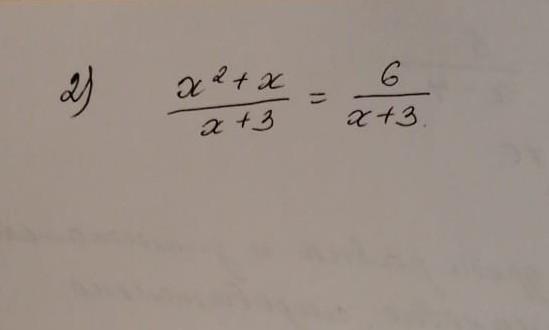 2) x²+x / x+3 = 6 / x+3